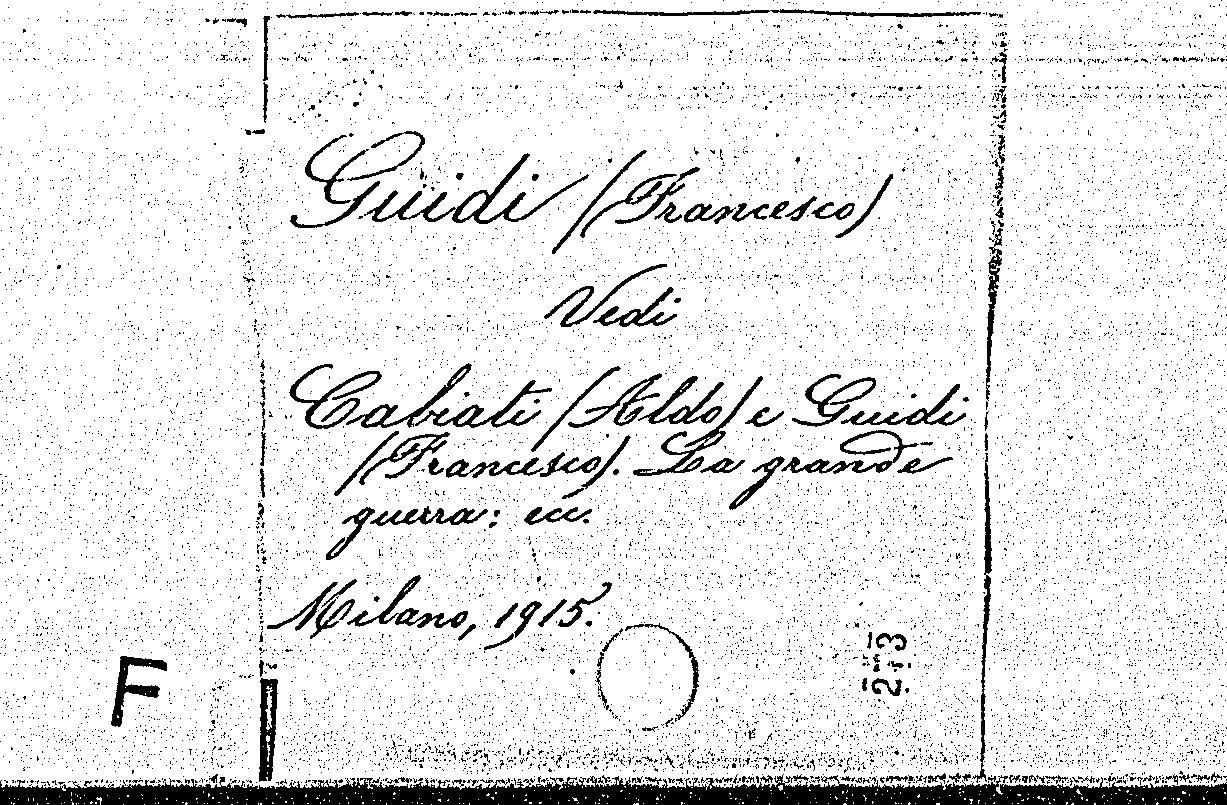 Guidi (Francesco)
Vedi
Cabiati (Aldo) e Guidi
(Francesco). La grande
guerra: ecc.
Milano, 1915.
F
213